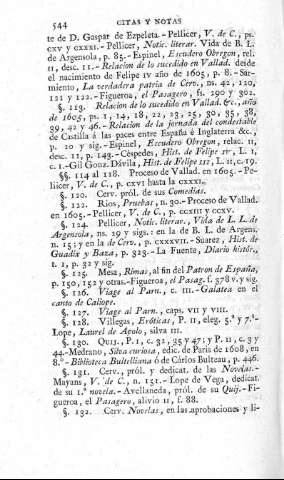 544 CITAS Y NOTAS
te de D. Gaspar de Ezpeleta.- Pellicer, V. de C., ps.
CXV y CXXXI.- Pellicer, Notic. literar. Vida de B. L.
de Argensola, p. 85.- Espinel, Escudero Obregon, rel.
II, desc. 11.- Relacion de lo sucedido en Vallad. desde
el nacimiento de Felipe IV año de 1605, p. 8.- Sar-
miento, La verdadera patria de Cerv., ps. 42, 120,
121 y 122.- Figueroa, el Pasagero, fs. 290 y 301.
§. 113. Relacion de lo sucedido en Vallad. &c., año
de 1605, ps. 1, 14, 18, 22, 23, 25, 30, 35, 38,
39, 42 y 46.- Relacion de la jornada del condestable
de Castilla á las paces entre España é Inglaterra &c.,
p. 20 y sig.- Espinel, Escudero Obregon, relac. II,
desc. 11, p. 143.- Céspedes, Hist. de Felipe IV, L. I,
c. 1.- Gil Gonz. Dávila, Hist. de Felipe III, L. II, c. 19.
§§. 114 al 118. Proceso de Vallad. en 1605.- Pe-
llicer, V. de C., p. CXVI hasta la CXXXI.
§. 120. Cerv. pról. de sus Comedias.
§. 122. Rios, Pruebas, n. 30.- Proceso de Vallad.
en 1605.- Pellicer, V. de C., p. CCXIII y CCXV.
§. 124. Pellicer, Notic. literar., Vida de L. L. de
Argensola, ns. 29 y sigs.: en la de B. L. de Argens.
n. 15; y en la de Cerv., p. CXXXVII.- Suarez, Hist. de
Guadix y Baza, p. 323.- La Fuente, Diario histór.,
t. 1, p. 32 y sig.
§. 125. Mesa, Rimas, al fin del Patron de España,
p. 150, 152 y otras.- Figueroa, el Pasag. f. 378 v. y sig.
§. 126. Viage al Parn., c. III.- Galatea en el
canto de Caliope.
§. 127. Viage al Parn., caps. VII y VIII.
§. 128. Villegas, Eróticas, P. II, eleg. 5.ª y 7.ª-
Lope, Laurel de Apolo, silva III.
§. 130. Quij., P. I, c. 32, 35 y 47; y P. II, c. 3 y
44.- Medrano, Silva curiosa, edic. de Paris de 1608, en
8.º- Biblioteca Bulteliiana ó de Cárlos Bulteau, p. 446.
§. 131. Cerv., pról. y dedicat. de las Novelas.-
Mayans, V. de C., n. 151.- Lope de Vega, dedicat.
de su 1.ª novela.- Avellaneda, pról. de su Quij.- Fi-
gueroa, el Pasagero, alivio II, f. 88.
§. 132. Cerv. Novelas, en las aprobaciones y li-